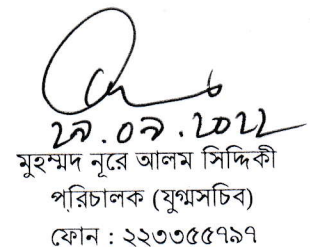 ২৯.০৯.২০২২
মুহম্মদ নূরে আলম সিদ্দিকী
পরিচালক (যুগ্মসচিব)
ফোন : ২২৩৩৫৫৭৯৭